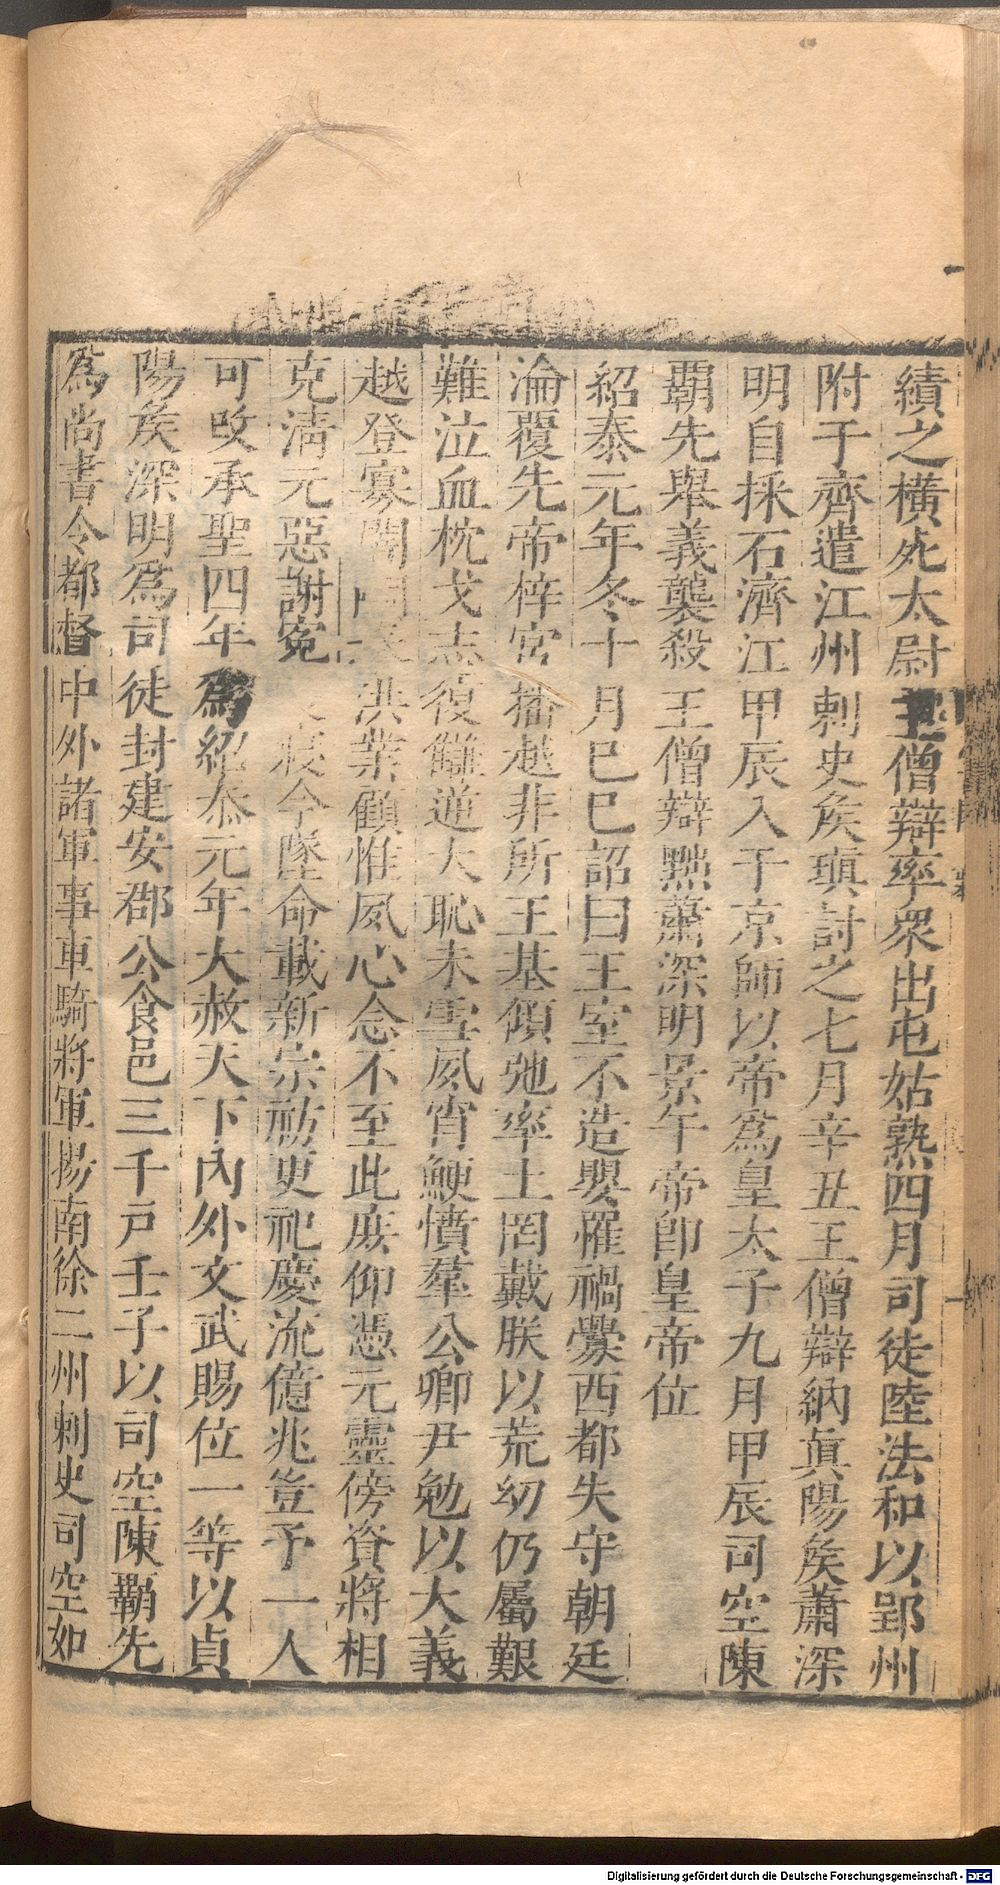 績之橫死太尉王僧辯率衆出屯姑熟四月司徒陸法和以郢州
附于齊遣江州刺史矦瑱討之七月辛丑王僧辯納眞陽矦蕭深
明自採石濟江甲辰入于京師以帝爲皇太子九月甲辰司空陳
覇先舉義襲殺王僧辯黜蕭深明景午帝卽皇帝位
紹泰元年冬十月己巳詔曰王室不造嬰罹禍釁西都失守朝廷
淪覆先帝梓宮播越非所王基傾弛率土罔戴朕以荒幼仍屬艱
難泣血枕戈志復讎逆大恥未雪夙宵鯁憤羣公卿尹勉以大義
越登寡闇洪業顧惟夙心念不至此庶仰憑元靈傍資將相
克淸元惡謝寃今墜命載新宗祊更祀慶流億兆豈予一人
可改承聖四年爲紹泰元年大赦天下內外文武賜位一等以貞
陽矦深明爲司徒封建安郡公食邑三千戶壬子以司空陳覇先
爲尚書令都督中外諸軍事車騎將軍揚南徐二州刺史司空如
Digitalisierung gefördert durch die Deutsche Forschungsgemeinschaft - DFG